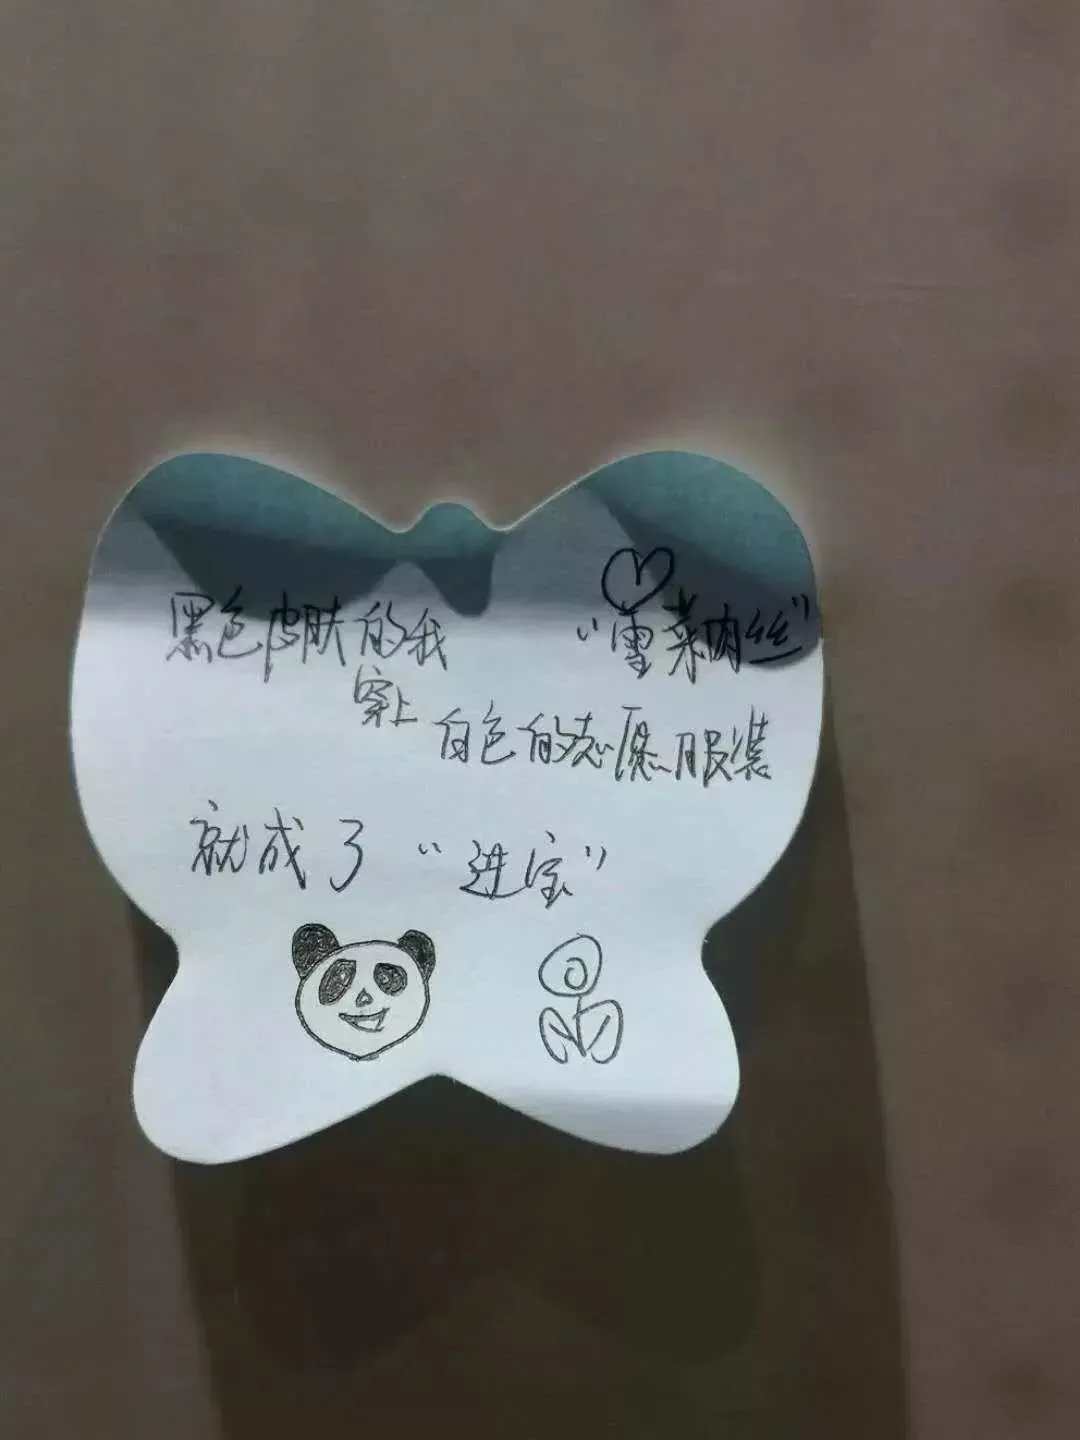 黑色皮肤的我
“雪菜肉丝”
穿上
白色的志愿服装
就成了“进宝”